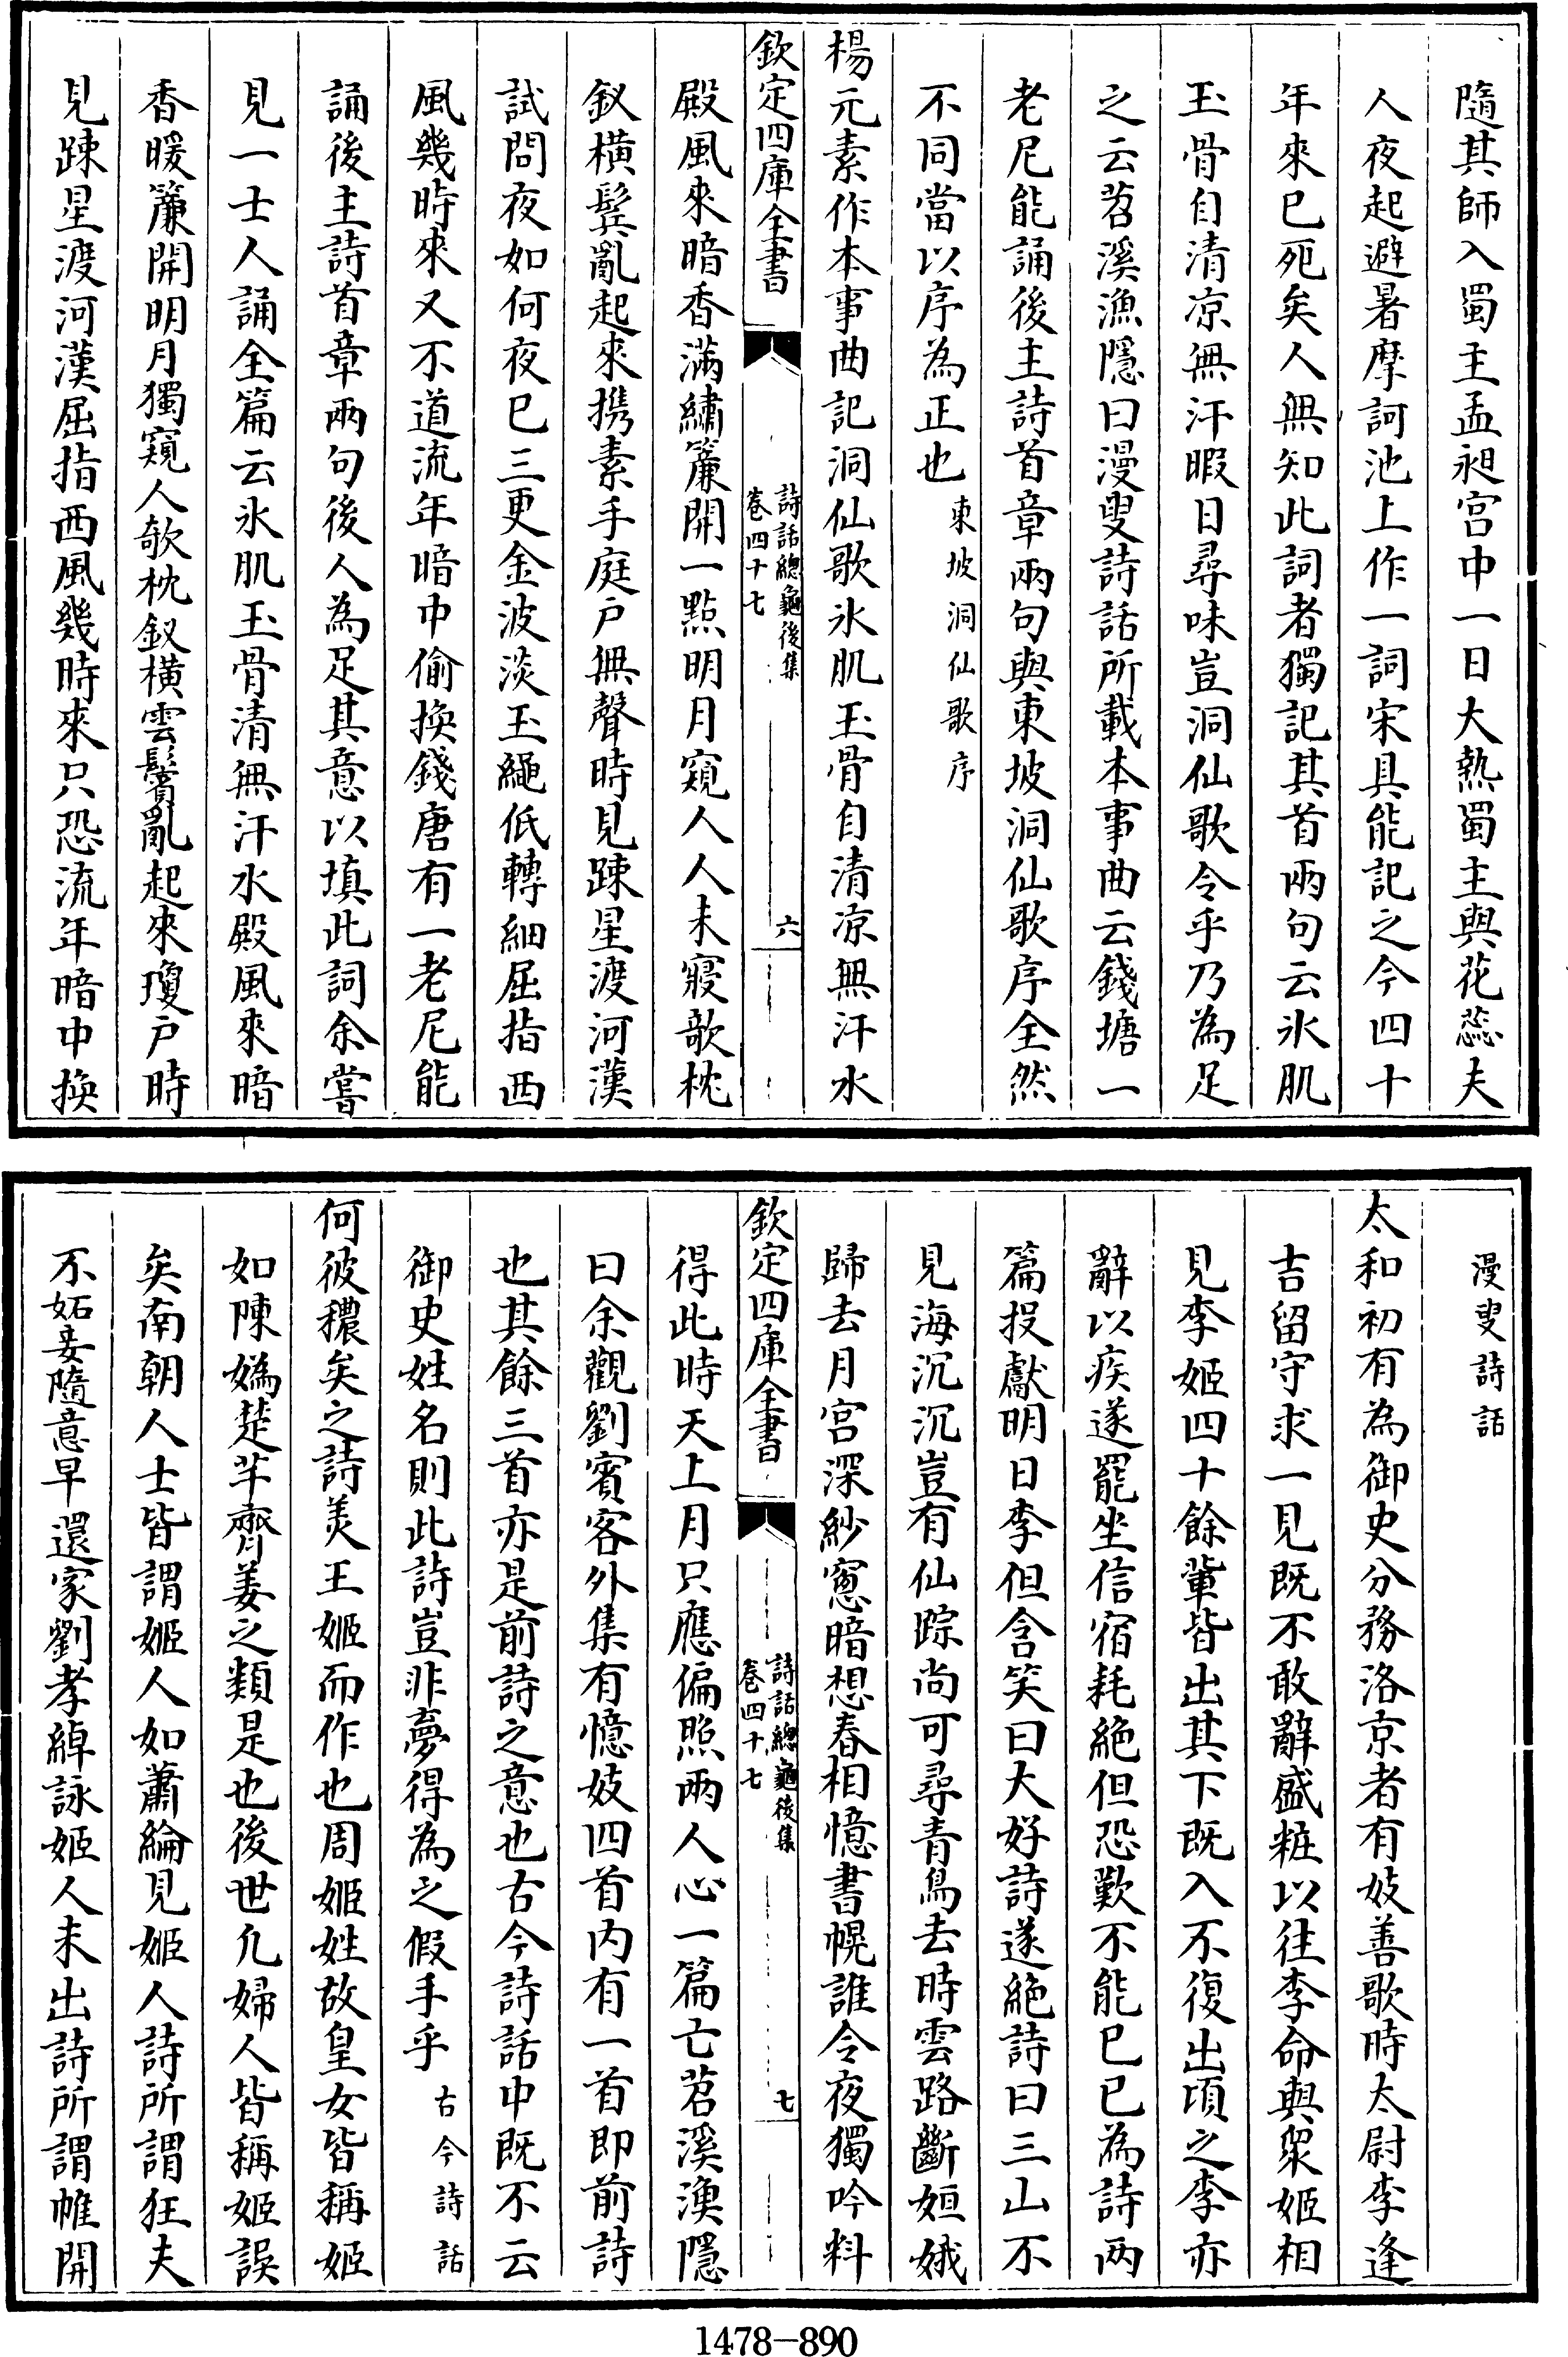 隨其師入蜀主孟昶宫中一日大熱蜀主與花蕊夫
人夜起避暑摩訶池上作一詞宋具能記之今四十
年來已死矣人無知此詞者獨記其首兩句云氷肌
玉骨自清凉無汗暇日尋味豈洞仙歌令乎乃為足
之云苕溪漁隱曰漫叟詩話所載本事曲云錢塘一
老尼能誦後主詩首章兩句與東坡洞仙歌序全然
不同當以序為正也東坡洞仙歌序
楊元素作本事曲記洞仙歌氷肌玉骨自清凉無汗水
欽定四庫全書
詩話總龜後集
卷四十七
六
殿風來暗香滿繡簾開一點明月窺人人未寢欹枕
釵橫鬂亂起來携素手庭户無聲時見踈星渡河漢
試問夜如何夜已三更金波淡玉繩低轉細屈指西
風幾時來又不道流年暗中偷換錢唐有一老尼能
誦後主詩首章兩句後人為足其意以填此詞余嘗
見一士人誦全篇云氷肌玉骨清無汗水殿風來暗
香暖簾開明月獨窺人欹枕釵橫雲鬢亂起來瓊户時
見踈星渡河漢屈指西風幾時來只恐流年暗中換
漫叟詩話
太和初有為御史分務洛京者有妓善歌時太尉李逢
吉留守求一見既不敢辭盛粧以往李命與衆姬相
見李姬四十餘輩皆出其下既入不復出頃之李亦
辭以疾遂罷坐信宿耗絶但恐歎不能已已為詩两
篇投獻明日李但含笑曰大好詩遂絶詩曰三山不
見海沉沉豈有仙踪尚可尋青鳥去時雲路斷姮娥
歸去月宫深紗窓暗想春相憶書幌誰令夜獨吟料
欽定四庫全書
詩話總龜後集
卷四十七
七
得此時天上月只應偏照兩人心一篇亡苕溪漁隱
曰余觀劉賓客外集有憶妓四首内有一首即前詩
也其餘三首亦是前詩之意也古今詩話中既不云
御史姓名則此詩豈非夢得為之假手乎古今詩話
何彼穠矣之詩美王姬而作也周姬姓故皇女皆稱姬
如陳媯楚芊齊姜之類是也後世凢婦人皆稱姬誤
矣南朝人士皆謂姬人如蕭綸見姬人詩所謂狂夫
不妬妾隨意早還家劉孝綽詠姬人未出詩所謂帷開
1478-890